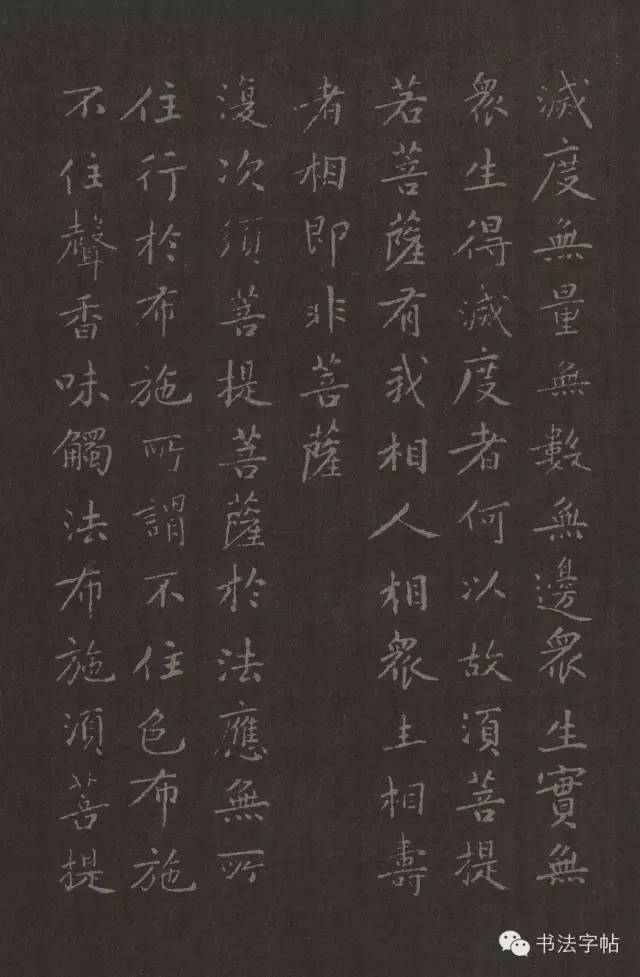 滅度無量無數無邊衆生實無
衆生得滅度者何以故須菩提
若菩薩有我相人相衆生相壽
者相即非菩薩
復次須菩提菩薩於法應無所
住行於布施所謂不住色布施
不住聲香味觸法布施須菩提
书法字帖